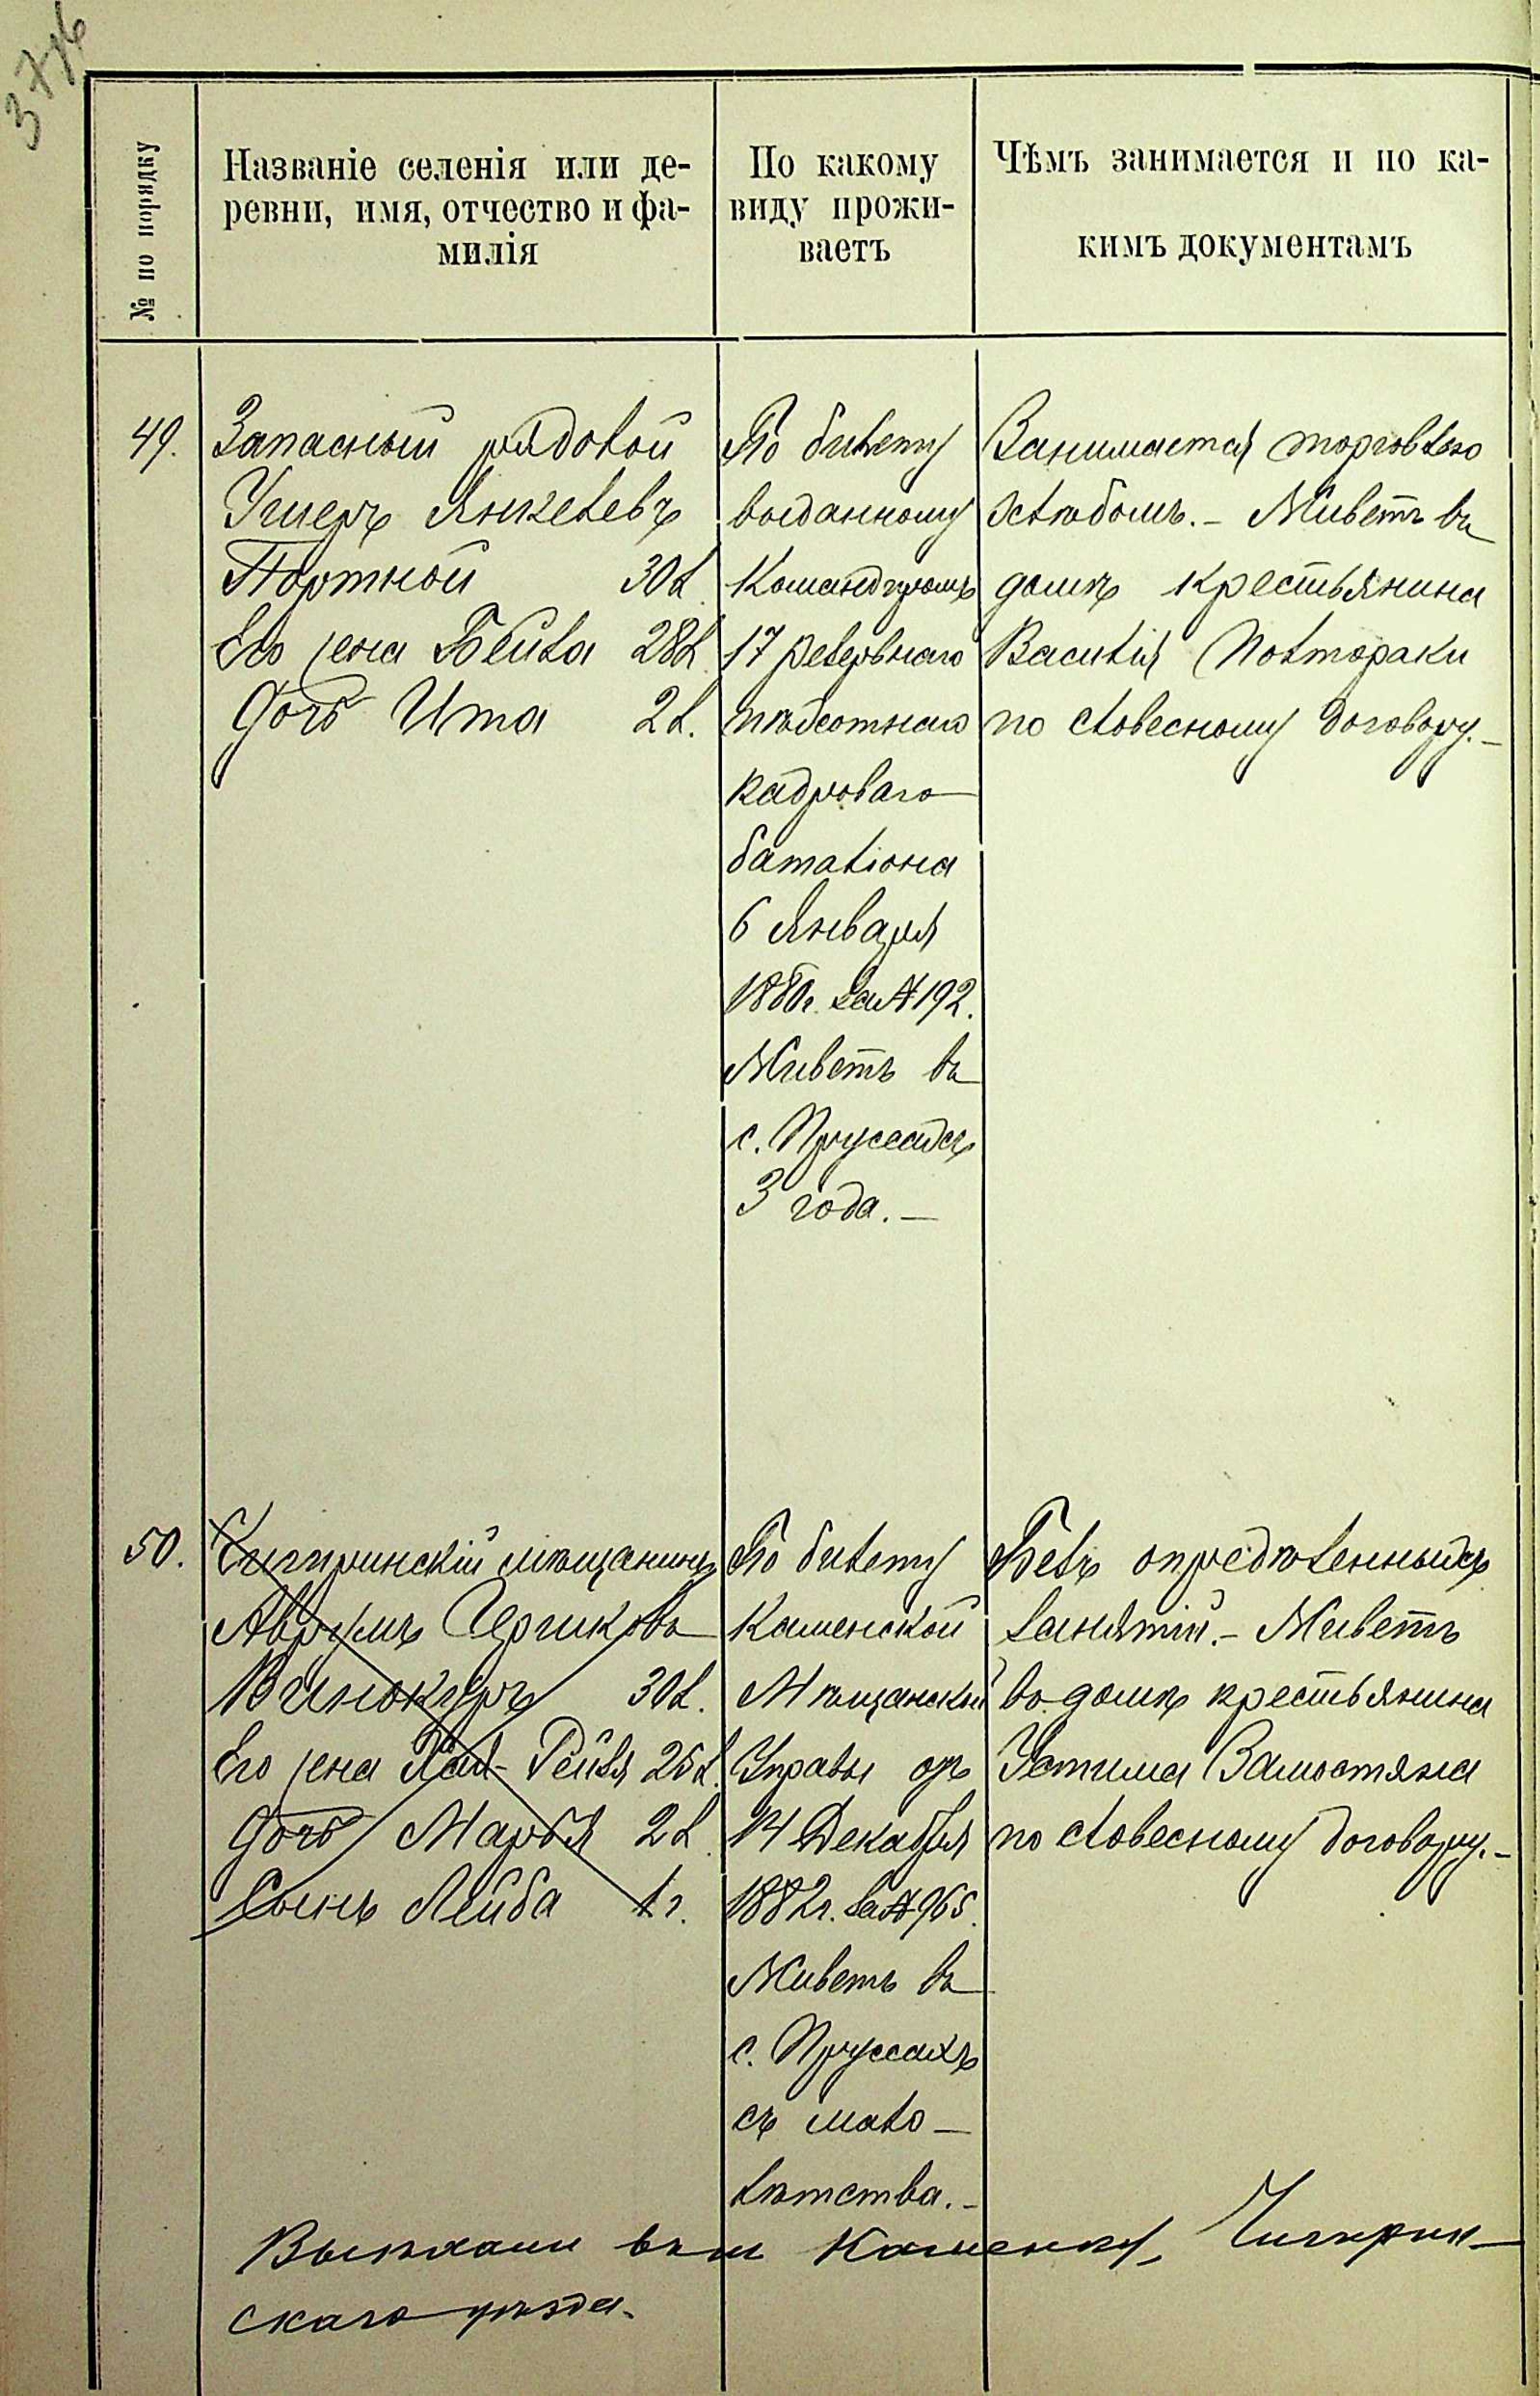 37 об
№ по порядку
Названіе селенія или де-
ревни, имя, отчество и фа-
милія
По какому
виду прожи-
ваетъ
Чѣмъ занимается и по ка-
кимъ документамъ
49.
Запасный рядовой
Ушеръ Янкелевъ
Портной 30 л.
Его жена Бейла 28 л.
Дочь Ита 2 л.
По билету
выданному
Командиромъ
17 резервнаго
пѣхотнаго
кадроваго
баталіона
6 Января
1880 г. за № 192.
Живетъ въ
с. Пруссахъ
3 года. —
Занимается торговлею
хлѣбомъ. — Живетъ въ
домѣ крестьянина
Василія Полтораки
по словесному договору. —
50.
Чигиринскій мѣщанинъ
Аврумъ Гершковъ
Винокуръ 30 л.
Его жена Хая-Рейзя 25 л.
Дочь Марья 2 л.
Сынъ Лейба 1 г.
По билету
Каменской
Мѣщанской
Управы отъ
14 Декабря
1882 г. за № 965.
Живетъ въ
с. Пруссахъ
съ мало —
лѣтства. —
Безъ опредѣленныхъ
занятій. — Живетъ
въ домѣ крестьянина
Устима Замостяна
по словесному договору. —
Выѣхали въ м Каменку, Чигирин —
скаго уѣзда.